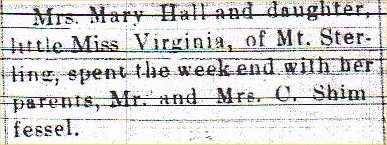 Mrs. Mary Hall and daughter,
little Miss Virginia, of Mt. Ster-
ling, spent the week end with her
parents, Mr. and Mrs. C. Shim
fessel.